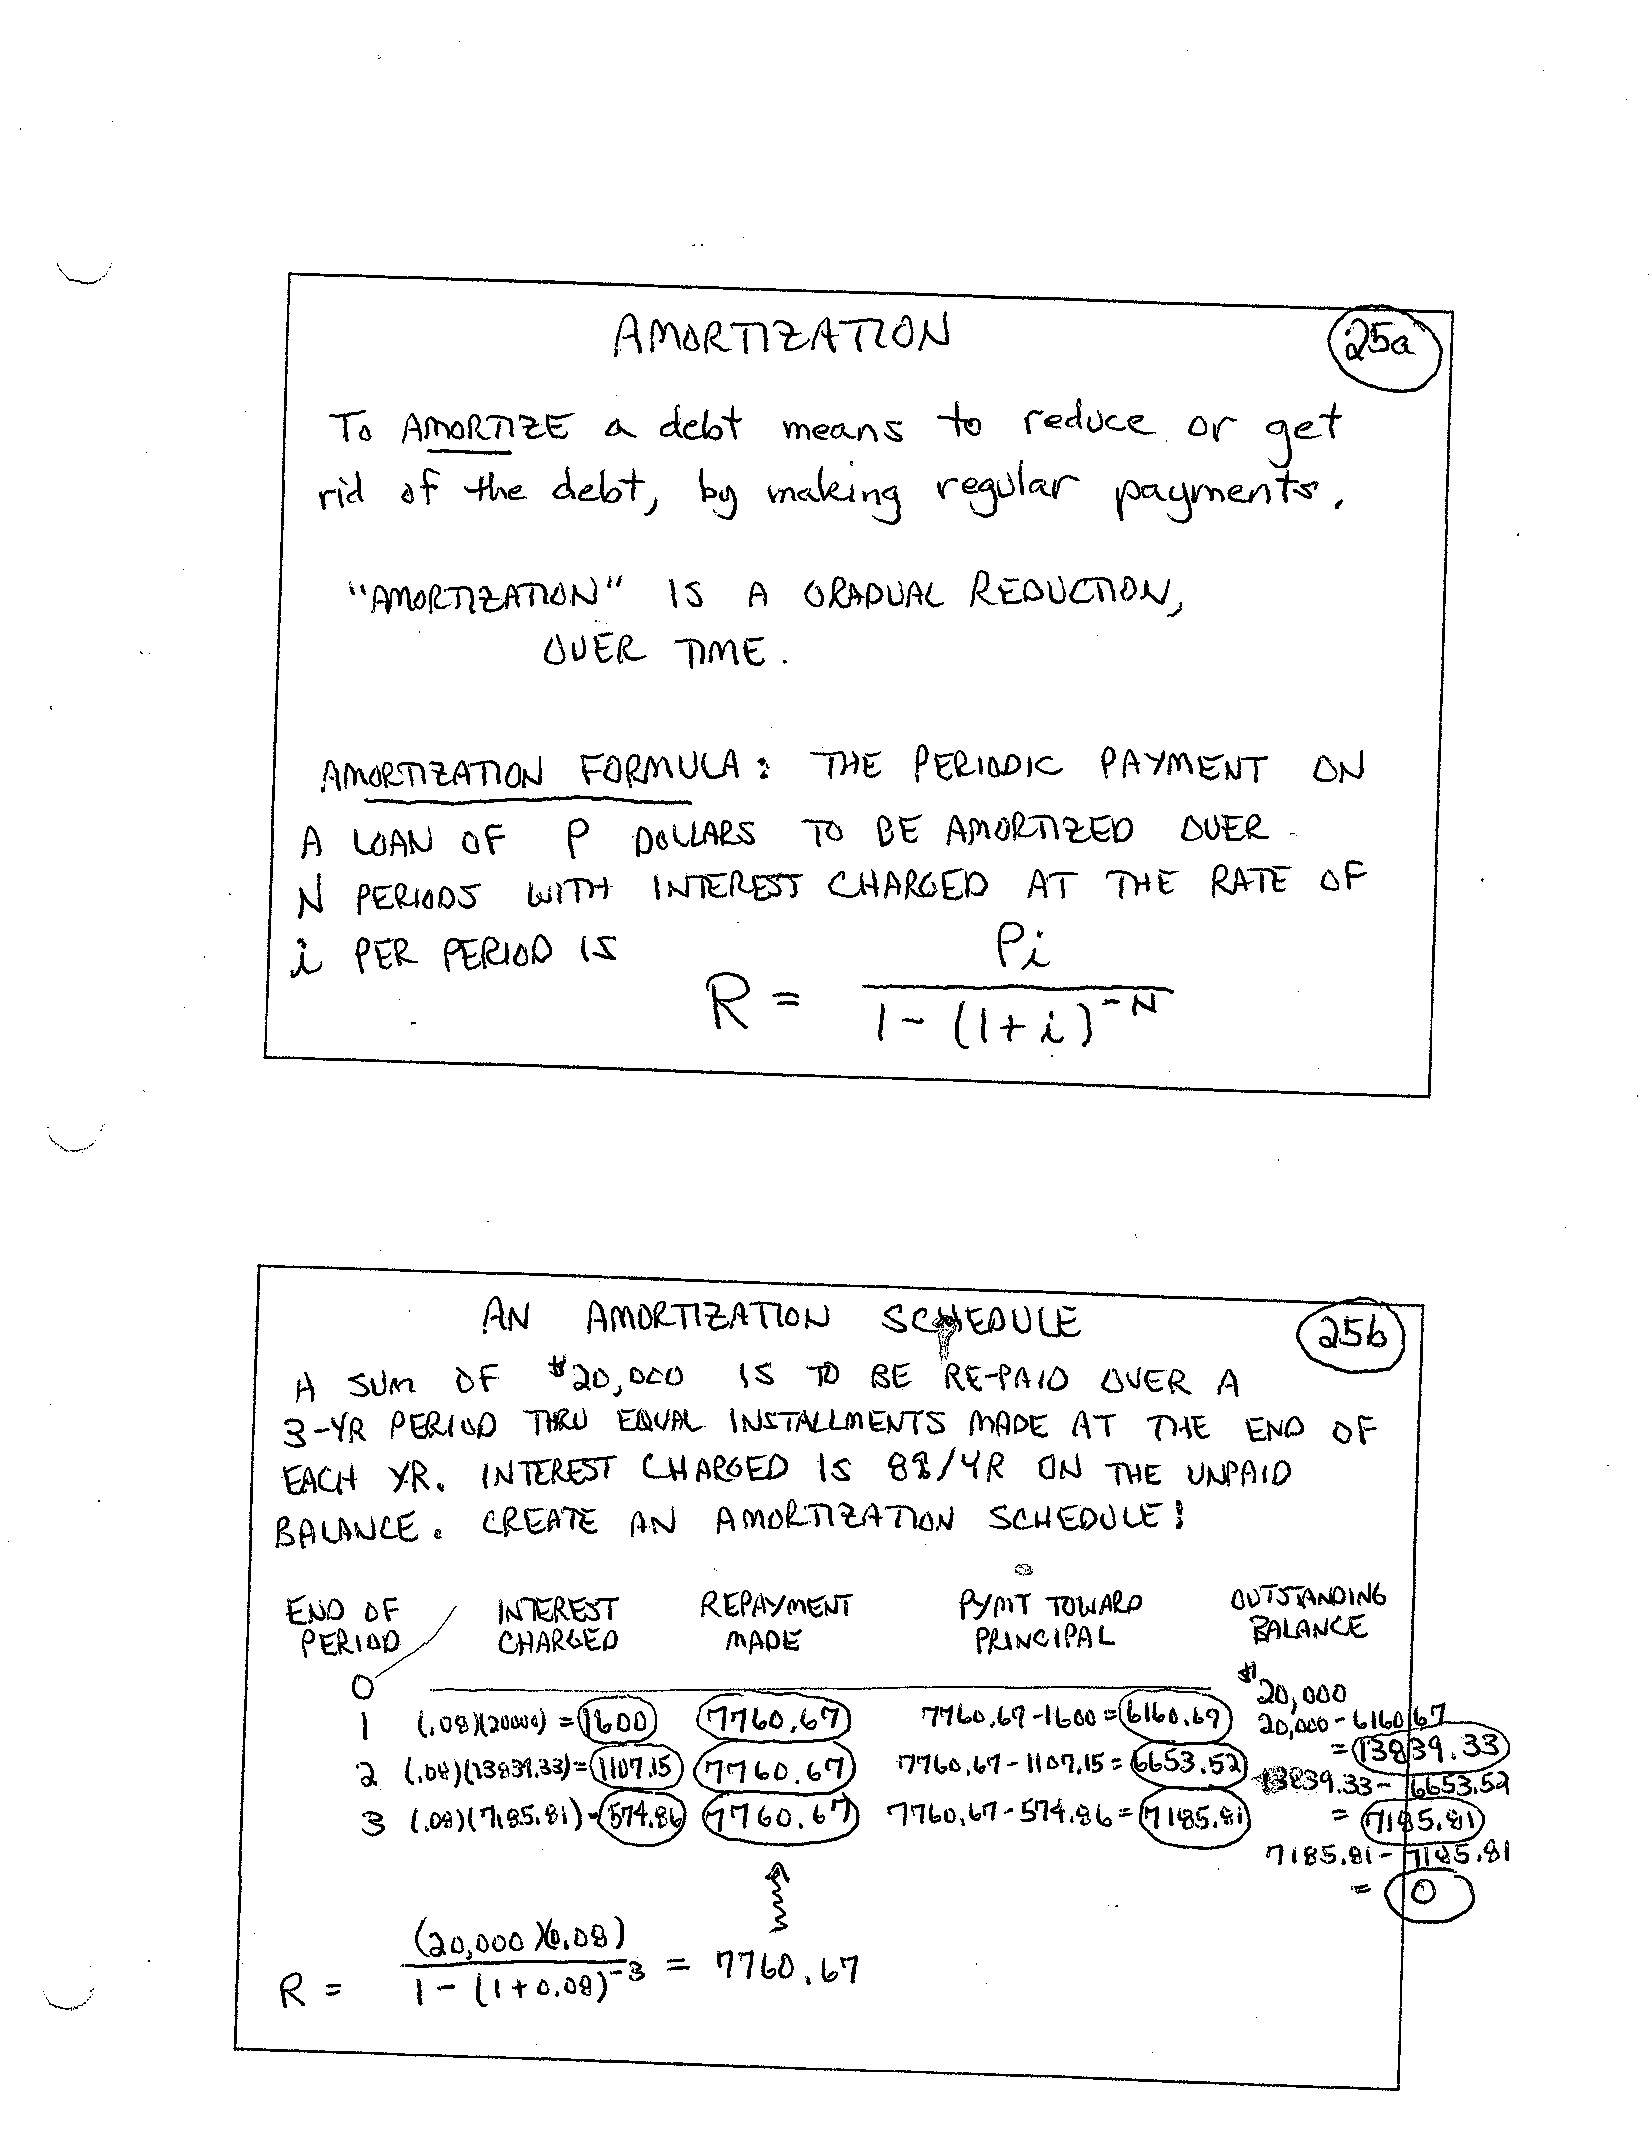 AMORTIZATION
25a
To AMORTIZE a debt means to reduce or get
rid of the debt, by making regular payments.
"AMORTIZATION" IS A GRADUAL REDUCTION,
OVER TIME.
AMORTIZATION FORMULA: THE PERIODIC PAYMENT ON
A LOAN OF P DOLLARS TO BE AMORTIZED OVER
N PERIODS WITH INTEREST CHARGED AT THE RATE OF
i PER PERIOD IS
R = Pi / 1-(1+i)^-N
AN AMORTIZATION SCHEDULE
25b
A SUM OF $20,000 IS TO BE RE-PAID OVER A
3-YR PERIOD THRU EQUAL INSTALLMENTS MADE AT THE END OF
EACH YR. INTEREST CHARGED IS 8%/YR ON THE UNPAID
BALANCE. CREATE AN AMORTIZATION SCHEDULE!
END OF PERIOD INTEREST CHARGED REPAYMENT MADE PYMT TOWARD PRINCIPAL OUTSTANDING BALANCE
0 $20,000
1 (.08)(20000) = 1600 7760.67 7760.67-1600 = 6160.67 20,000-6160.67
= 13839.33
2 (.08)(13839.33) = 1107.15 7760.67 7760.67-1107.15 = 6653.52 13839.33-6653.52
= 7185.81
3 (.08)(7185.81) = 574.86 7760.67 7760.67-574.86 = 7185.81 7185.81-7185.81
= 0
R = (20,000)(0.08) / 1-(1+0.08)^-3 = 7760.67